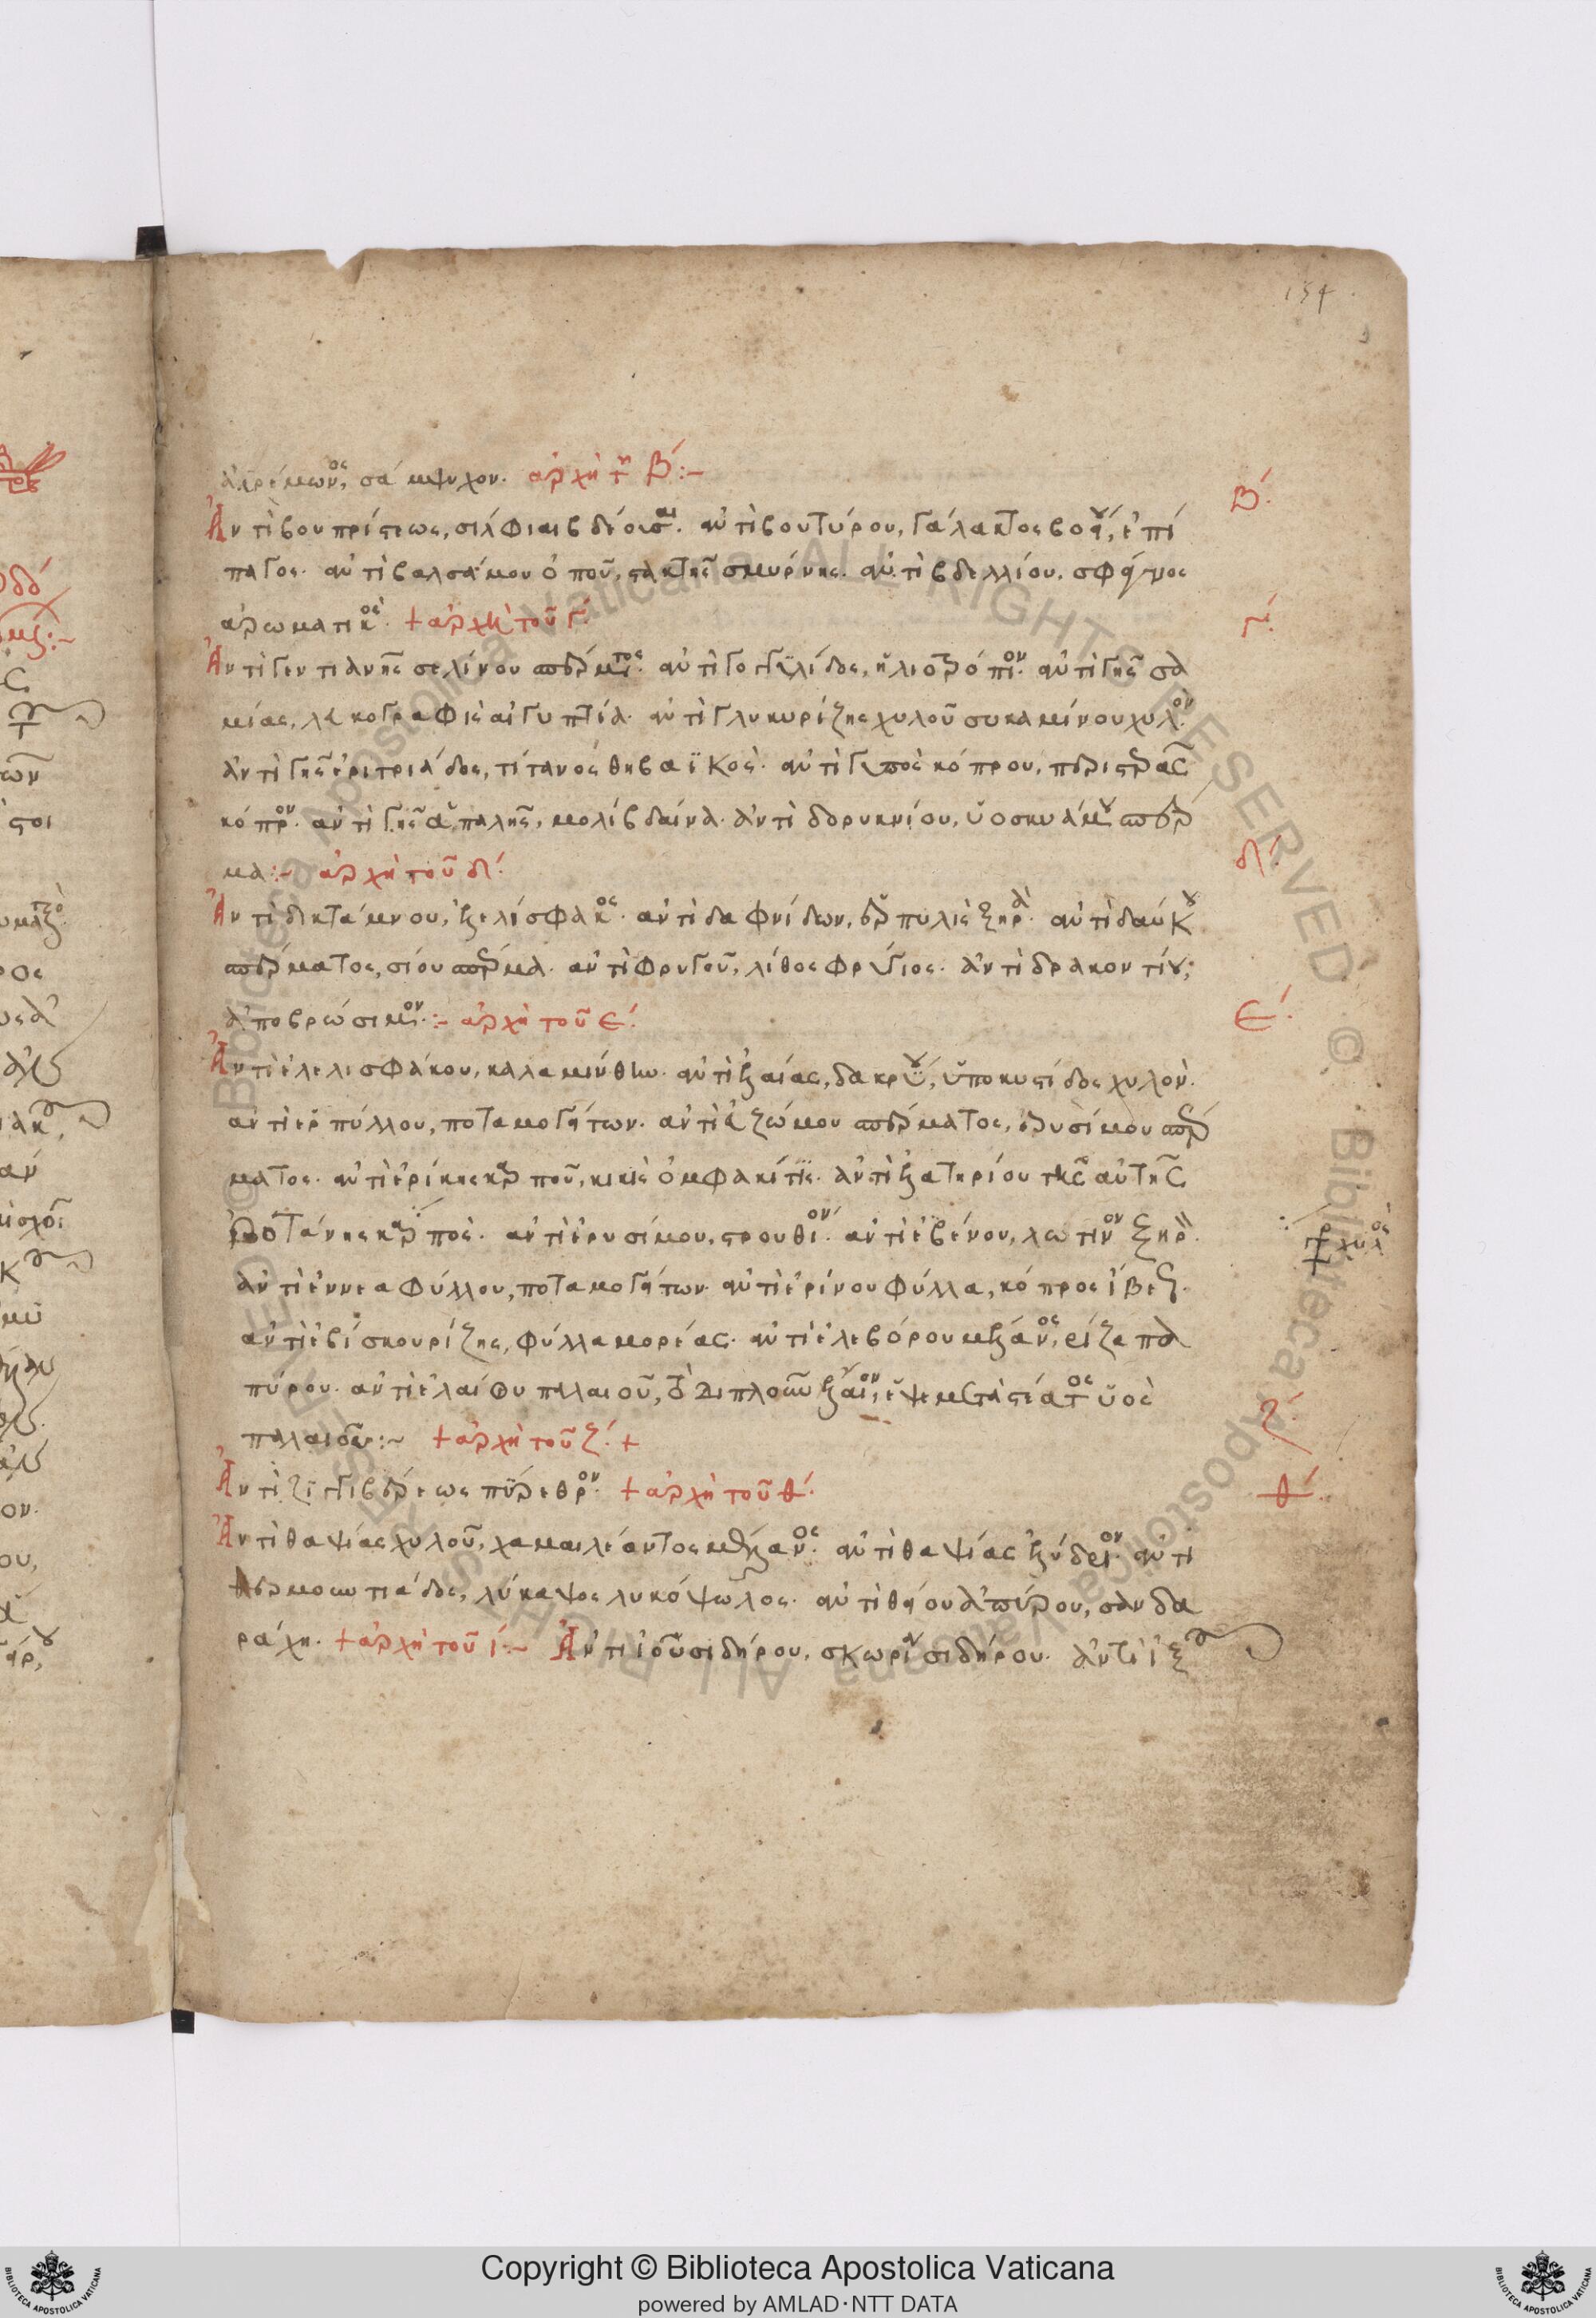 154
ἀῤῥεμῶνος, σάμψυχον. ἀρχὴ τοῦ Β´:–
Β´.
Ἀντὶ βουπρίστεως, σίλφαι αἱ βδέουσαι. ἀντὶ βουτύρου, γάλακτος βοείου, ἐπί
παγος. ἀντὶ βαλσάμου ὀποῦ, στακτῆς σμύρνης. ἀντὶ βδελλίου, σφάγνος
ἀρωματικός. + ἀρχὴ τοῦ Γ´.
Γ´.
Ἀντὶ γεντιανῆς σελίνου σπέρματος. ἀντὶ γογγυλίδος, ἡλιοτρόπιον. ἀντὶ γῆς σα
μίας, λευκογραφὶς αἰγυπτία. ἀντὶ γλυκυρίζης χυλοῦ συκαμίνου χυλόν.
ἀντὶ γῆς ἐριτριάδος, τίτανος θηβαϊκός. ἀντὶ γυπὸς κόπρου, περιστερᾶς
κόπρον. ἀντὶ γῆς ἁπαλῆς, μολίβδαινα. ἀντὶ δορυκνίου, ὑοσκυάμου σπέρ
μα:– ἀρχὴ τοῦ δ´.
δ´.
Ἀντὶ δικτάμνου, ἐλελίσφακος. ἀντὶ δαφνίδων, ἑρπυλὶς ξηρά. ἀντὶ δαύκου
σπέρματος, σίου σπέρμα. ἀντὶ φρυγοῦ, λίθος φρύγιος. ἀντὶ δρακοντίου,
ἀποβρώσιμον:– ἀρχὴ τοῦ ε´.
ε´.
Ἀντὶ ἐλελισφάκου, καλαμίνθην. ἀντὶ ἐλαίας, δακρύου, ὑποκιστίδος χυλόν.
ἀντὶ ἑρπύλλου, ποταμογείτων. ἀντὶ εὐζώμου σπέρματος, ἐρυσίμου σπέρ
ματος. ἀντὶ ἐρίκης καρποῦ, κικὶς ὀμφακίτις. ἀντὶ ἐλατηρίου τῆς αὐτῆς
βοτάνης καρπός. ἀντὶ ἐρυσίμου, στρουθίον. ἀντὶ ἐβένου, λώτινον ξηρ.
ἀντὶ ἐννεαφύλλου, ποταμογείτων. ἀντὶ ἐρίνου φύλλα, κόπρος ἴβεως.
ἀντὶ ἐβίσκου ρίζης, φύλλα μορέας. ἀντὶ ἐλεβόρου μέλανος, ρίζα πα
πύρου. ἀντὶ ἐλαίου παλαιοῦ, τὸ διπλοῦν ἔλαιον, ἕψε μετὰ στέατος ὑὸς
παλαιοῦ:– + ἀρχὴ τοῦ ζ´. +
ζ´.
Ἀντὶ ζιγγιβέρεως πύρεθρον. + ἀρχὴ τοῦ θ´.
θ´.
Ἀντὶ θαψίας χυλοῦ, χαμαιλέοντος μέλανος. ἀντὶ θαψίας ἐλύδριον. ἀντὶ
λύκαψος λυκόψωλος. ἀντὶ θείου ἀπύρου, σανδα
ράχη. + ἀρχὴ τοῦ ι´:– Ἀντὶ ἰοῦ σιδήρου, σκωρία σιδήρου. ἀντὶ ἰξ
Copyright © Biblioteca Apostolica Vaticana
powered by AMLAD·NTT DATA